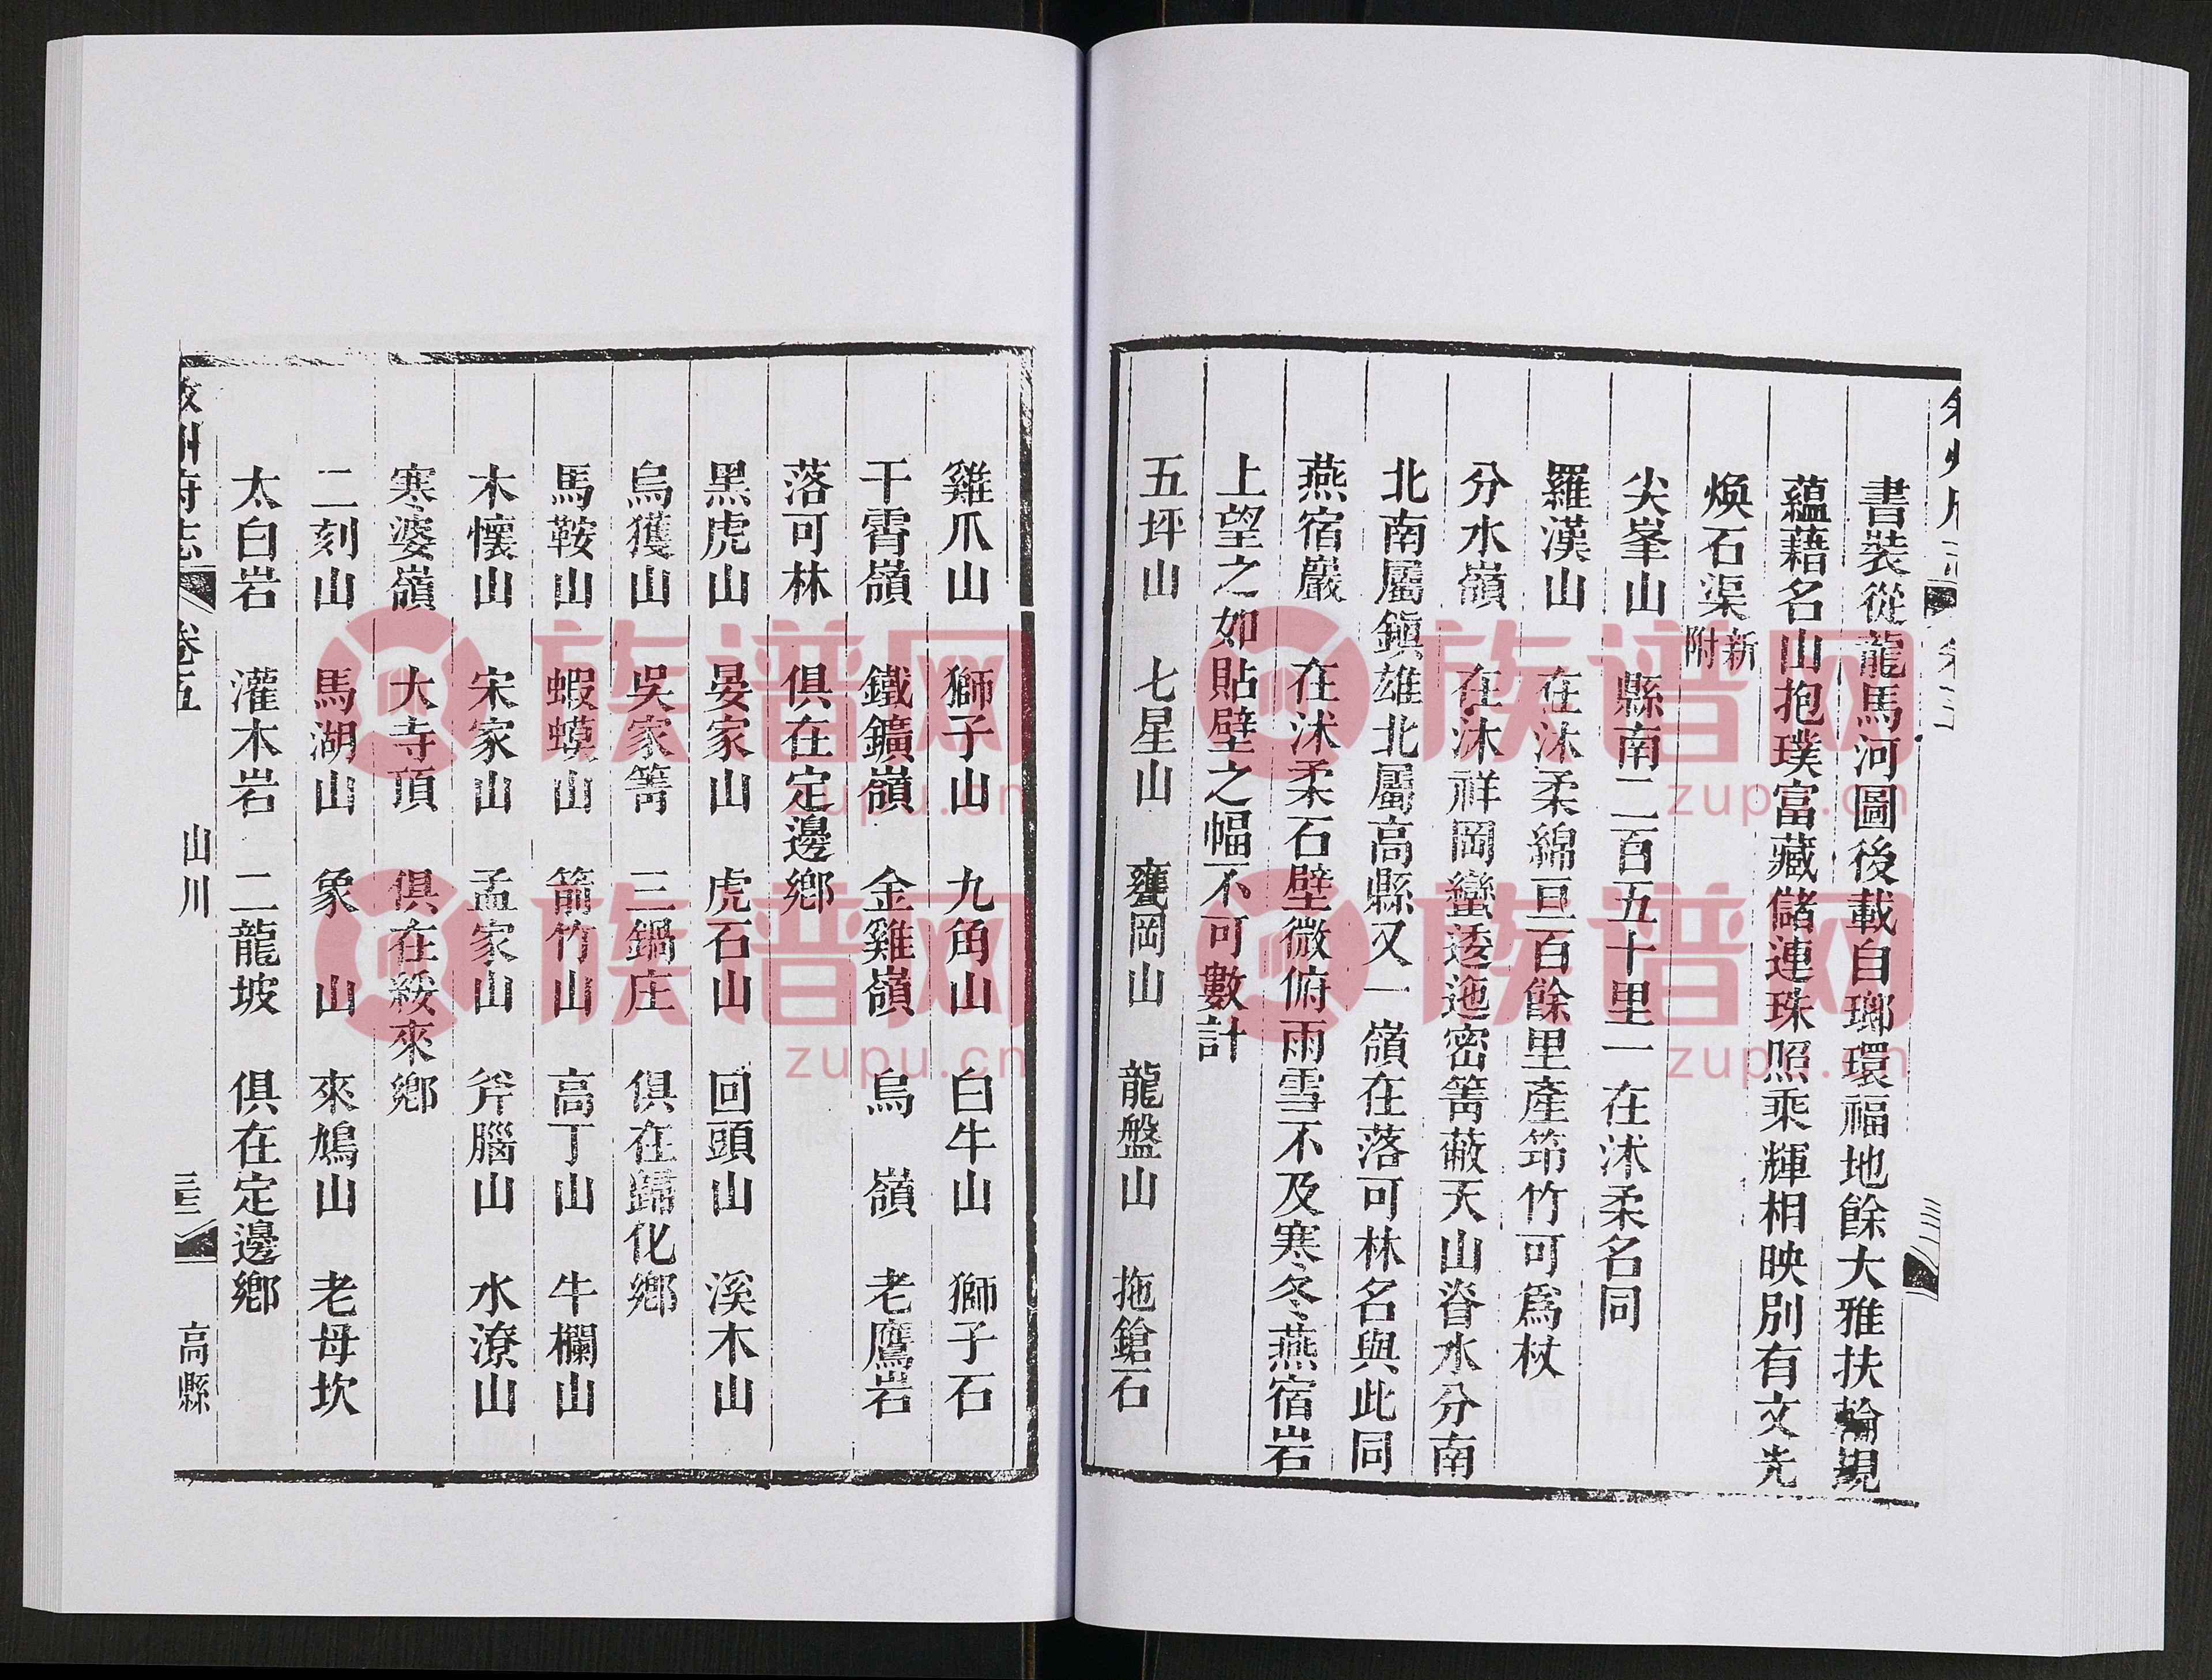 書裝從龍馬河圖後載自瑯環福地餘大雅扶輪規
蘊藉名山抱璞富藏儲連珠照乘輝相映別有文光
煥石渠新附
尖峯山 縣南二百五十里一在沭柔名同
羅漢山 在沭柔綿亘百餘里產筇竹可爲杖
分水嶺 在沭祥岡巒逶迤密箐蔽天山脊水分南
北南屬鎮雄北屬高縣又一嶺在落可林名與此同
燕宿巖 在沭柔石壁微俯雨雪不及寒冬燕宿岩
上望之如貼壁之幅不可數計
五坪山 七星山 甕岡山 龍盤山 拖鎗石
雞爪山 獅子山 九角山 白牛山 獅子石
干霄嶺 鐵鑛嶺 金雞嶺 烏嶺 老鷹岩
落可林 俱在定邊鄉
黑虎山 晏家山 虎石山 回頭山 溪木山
烏獲山 吳家箐 三鍋庄 俱在歸化鄉
馬鞍山 蝦蟆山 箭竹山 高丁山 牛欄山
木懷山 宋家山 孟家山 斧腦山 水潦山
寒婆嶺 大寺頂 俱在綏來鄉
二刻山 馬湖山 象山 來鳩山 老母坎
太白岩 灌木岩 二龍坡 俱在定邊鄉
敘州府志 卷五 山川 高縣
族谱网
zupu.cn
族谱网
zupu.cn
族谱网
zupu.cn
族谱网
zupu.cn